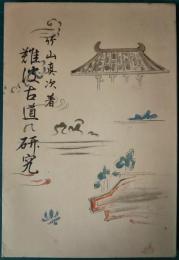 竹山真次著
難波古道の研究